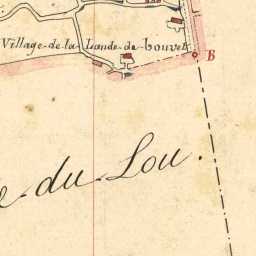 Village-de-la-Lande-de-Louvet
B
e-du-Lou.